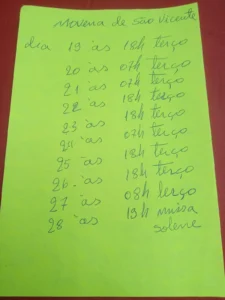 Novena de são Vicente
dia 19 às 18h terço
20 às 07h terço
21 às 07h terço
22 às 18h terço
23 às 18h terço
24 às 07h terço
25 às 18h terço
26 às 18h terço
27 às 08h terço
28 às 19h missa
solene